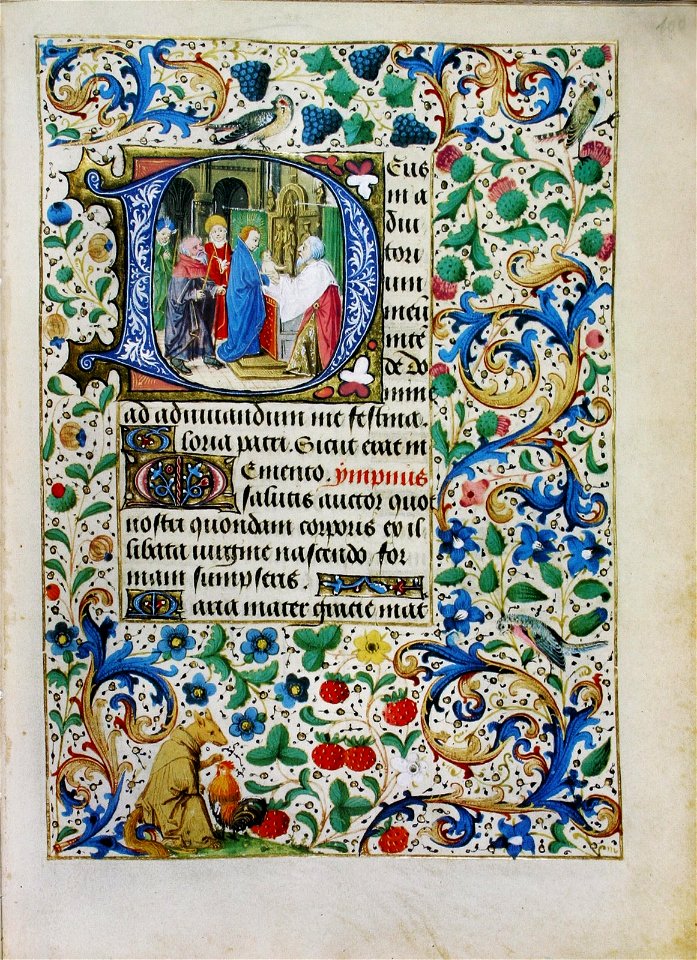 Deus
in a
diu
tori
um
meū
inte
de do
mine
ad adiuuandum me festina.
Gloria patri. Sicut erat in
Memento ympnus
salutis auctor quod
nostri quondam corporis ex il
libata uirgine nascendo for
mam sumpseris.
Maria mater gracie mat